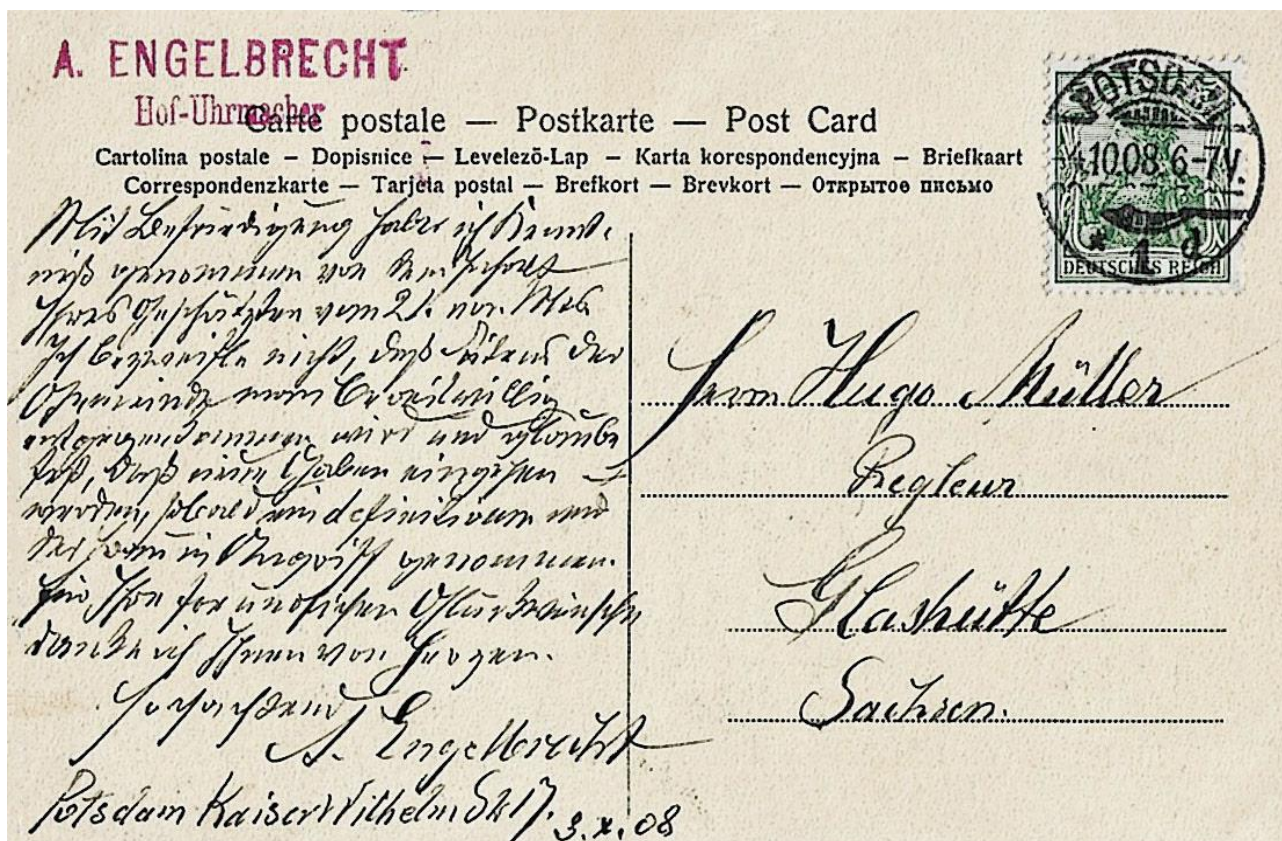 A. ENGELBRECHT
Hof-Uhrmacher
Carte postale — Postkarte — Post Card
Cartolina postale – Dopisnice – Levelező-Lap – Karta korespondencyjna – Briefkaart
Correspondenzkarte — Tarjeta postal – Brefkort – Brevkort – Открытое письмо
POTSDAM
4.10.08.6-7V.
* 1 d
DEUTSCHES REICH
Mit Befriedigung habe ich Kennt-
niß genommen von dem Inhalt
Ihres Geschätzten vom 21. vor. Mts
Ich bezweifle nicht, daß Seitens der
Gemeinde man bereitwillig
entgegenkommen wird und glaube
fest, daß neue Gaben eingehen
werden, sobald ein definitivum und
der Bau in Angriff genommen.
Für Ihre freundlichen Glückwünsche
danke ich Ihnen von Herzen.
Hochachtend
A. Engelbrecht
Potsdam Kaiser Wilhelm Str 17. 3.X.08
Herrn Hugo Müller
Regleur
Glashütte
Sachsen.